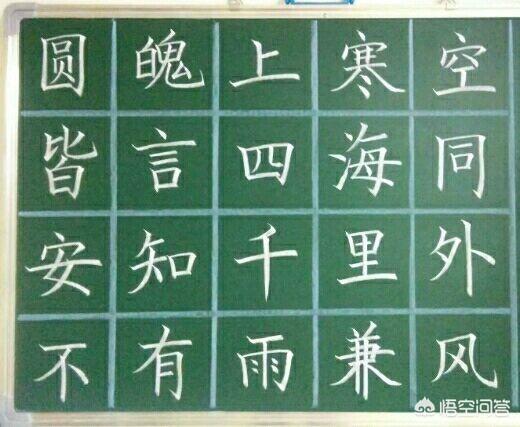 圆魄上寒空
皆言四海同
安知千里外
不有雨兼风
悟空问答